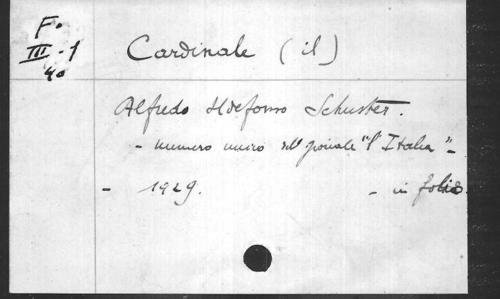 F.
III-1
40
Cardinale (il)
Alfredo Ildefonso Schuster.
- numero unico del giornale "l'Italia" -
- 1929. - in folio.